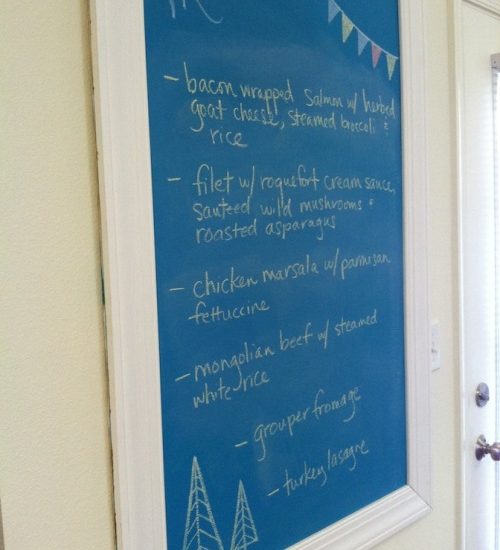 - bacon wrapped salmon w/ herbed
goat cheese, steamed broccoli &
rice
- filet w/ roquefort cream sauce,
sauteed wild mushrooms &
roasted asparagus
- chicken marsala w/ parmisan
fettuccine
- mongolian beef w/ steamed
white rice
- grouper fromage
- turkey lasagne